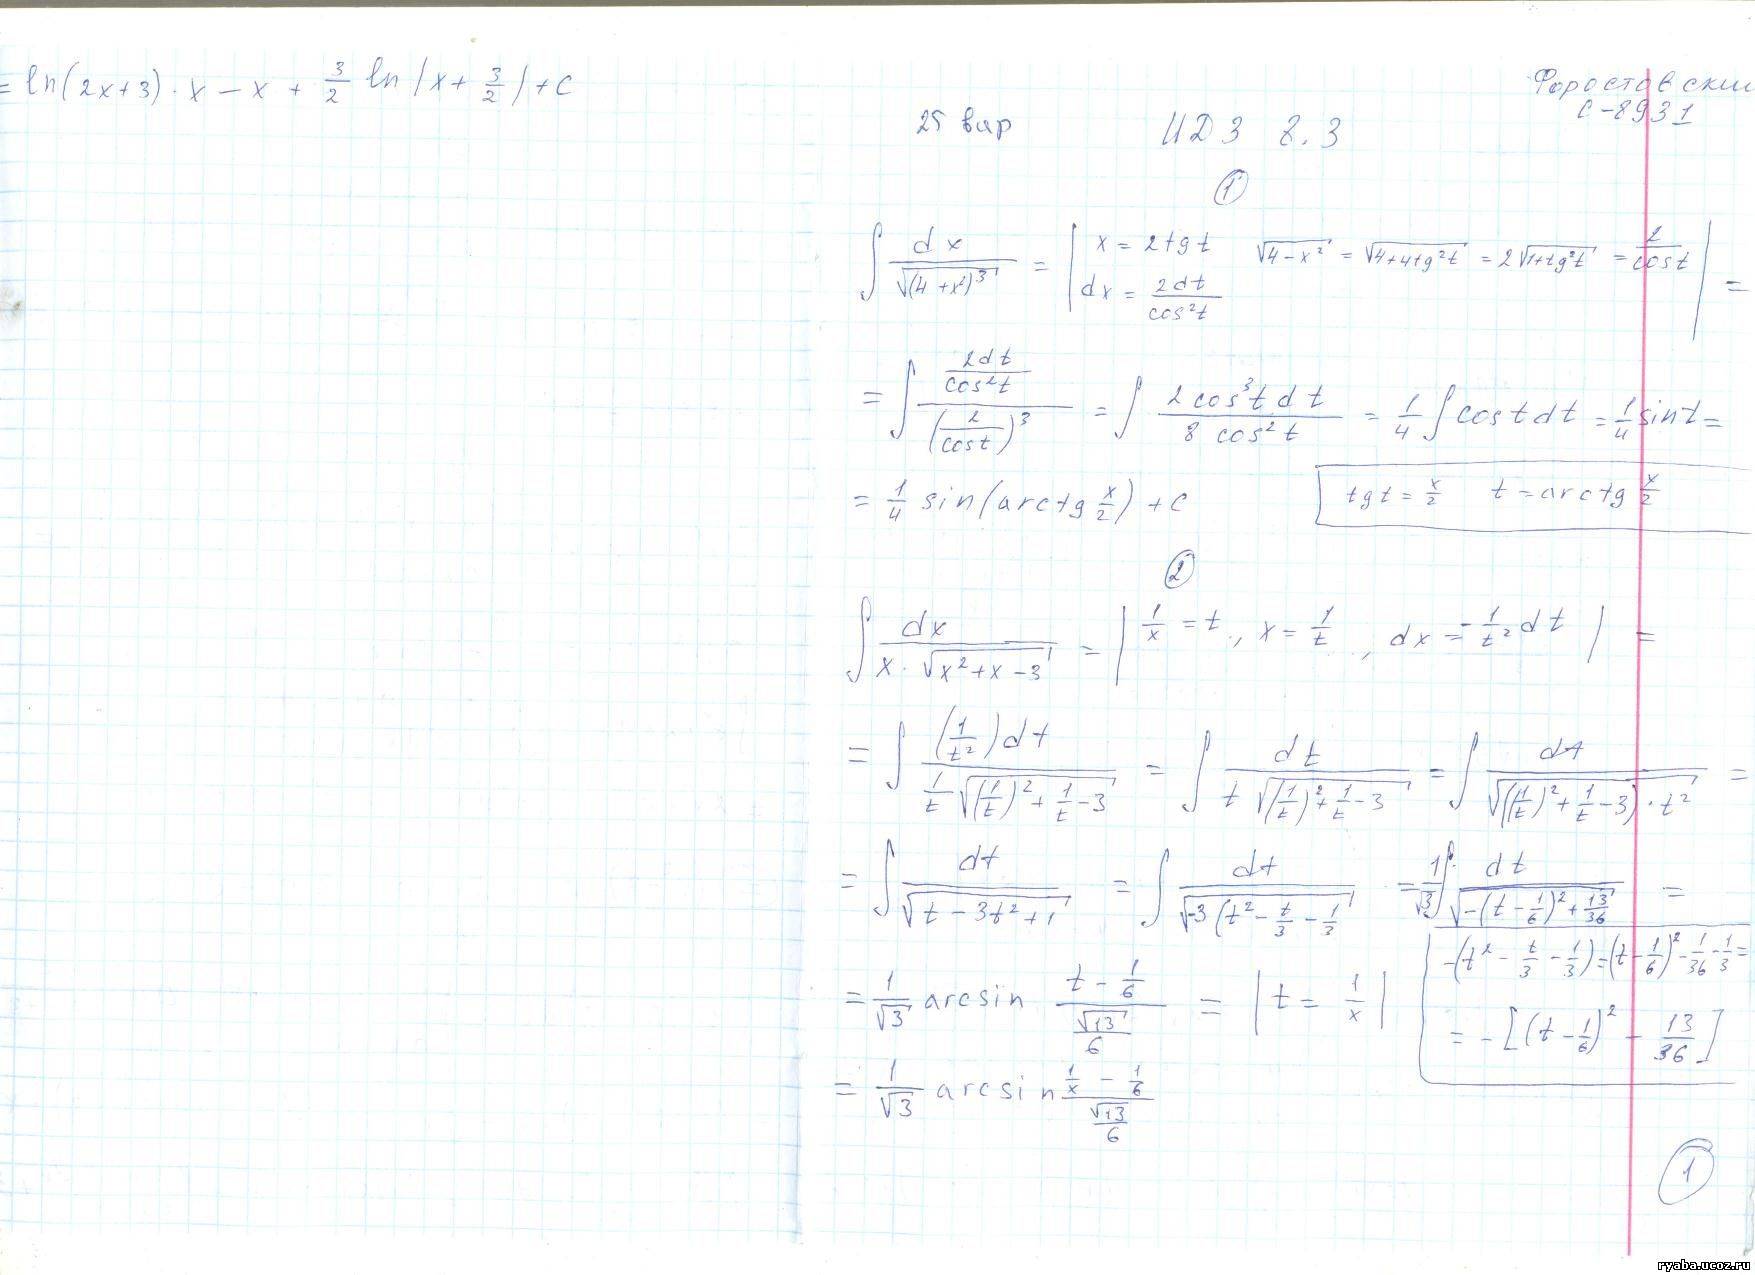 = ln(2x+3)·x − x + 3/2 ln|x + 3/2| + c
Форостовский
С-8931
25 вар ИДЗ 8.3
①
∫ dx/√((4+x²)³) = | x = 2tg t √(4−x²) = √(4+4tg²t) = 2√(1+tg²t) = 2/cos t | =
dx = 2dt/cos²t
= ∫ (2dt/cos²t)/(2/cos t)³ = ∫ 2cos³t dt/(8 cos²t) = 1/4 ∫ cos t dt = 1/4 sin t =
= 1/4 sin(arctg x/2) + c tg t = x/2 t = arctg x/2
②
∫ dx/(x·√(x²+x−3)) = | 1/x = t, x = 1/t, dx = −1/t² dt | =
= ∫ (1/t²)dt/(1/t √((1/t)²+1/t−3)) = ∫ dt/(t √((1/t)²+1/t−3)) = ∫ dt/√(((1/t)²+1/t−3)·t²) =
= ∫ dt/√(t−3t²+1) = ∫ dt/√(−3(t²−t/3−1/3) = 1/√3 ∫ dt/√(−(t−1/6)²+13/36) =
−(t²−t/3−1/3) = (t−1/6)²−1/36−1/3 =
= −[(t−1/6)² − 13/36]
= 1/√3 arcsin (t−1/6)/(√13/6) = | t = 1/x |
= 1/√3 arcsin (1/x − 1/6)/(√13/6)
①
ryaba.ucoz.ru